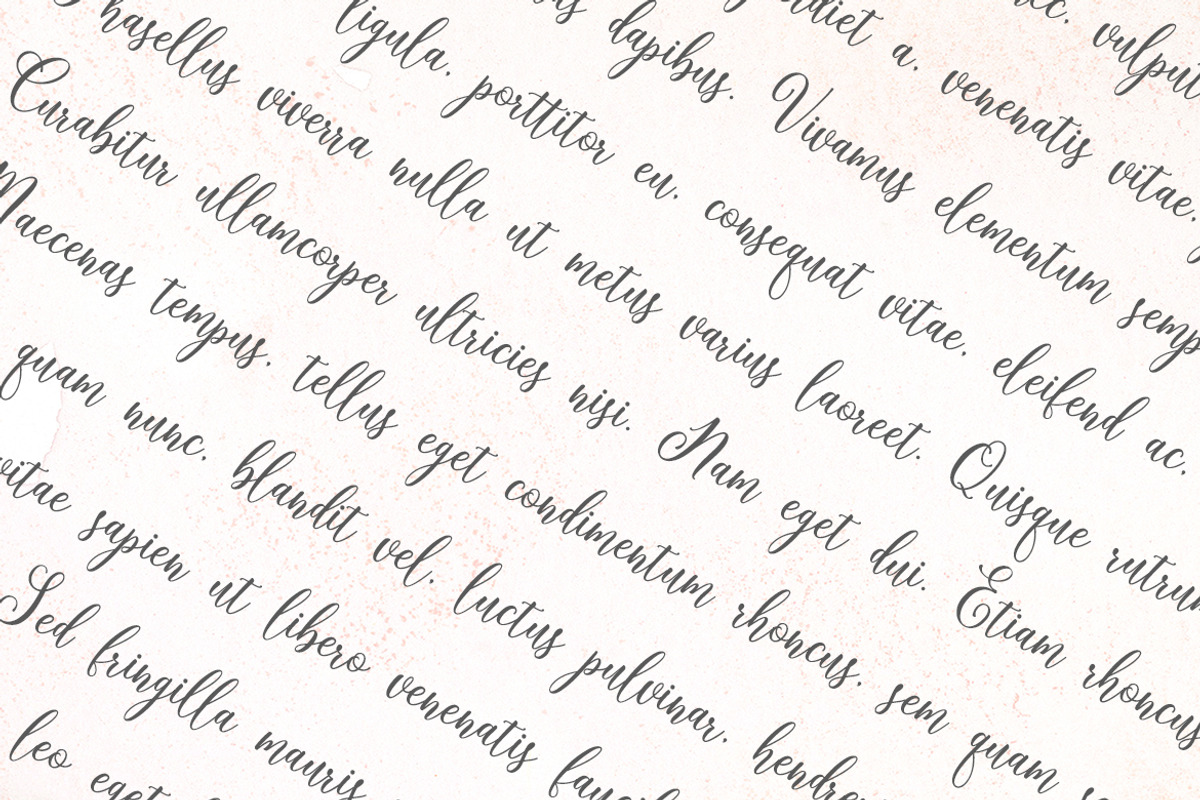 vulput
a, venenatis vitae,
dapibus. Vivamus elementum semp
ligula, porttitor eu, consequat vitae, eleifend ac,
Phasellus viverra nulla ut metus varius laoreet. Quisque rutrum
Curabitur ullamcorper ultricies nisi. Nam eget dui. Etiam rhoncus
Maecenas tempus, tellus eget condimentum rhoncus, sem quam
quam nunc, blandit vel, luctus pulvinar, hendre
vitae sapien ut libero venenatis fauci
Sed fringilla mauris
leo eget